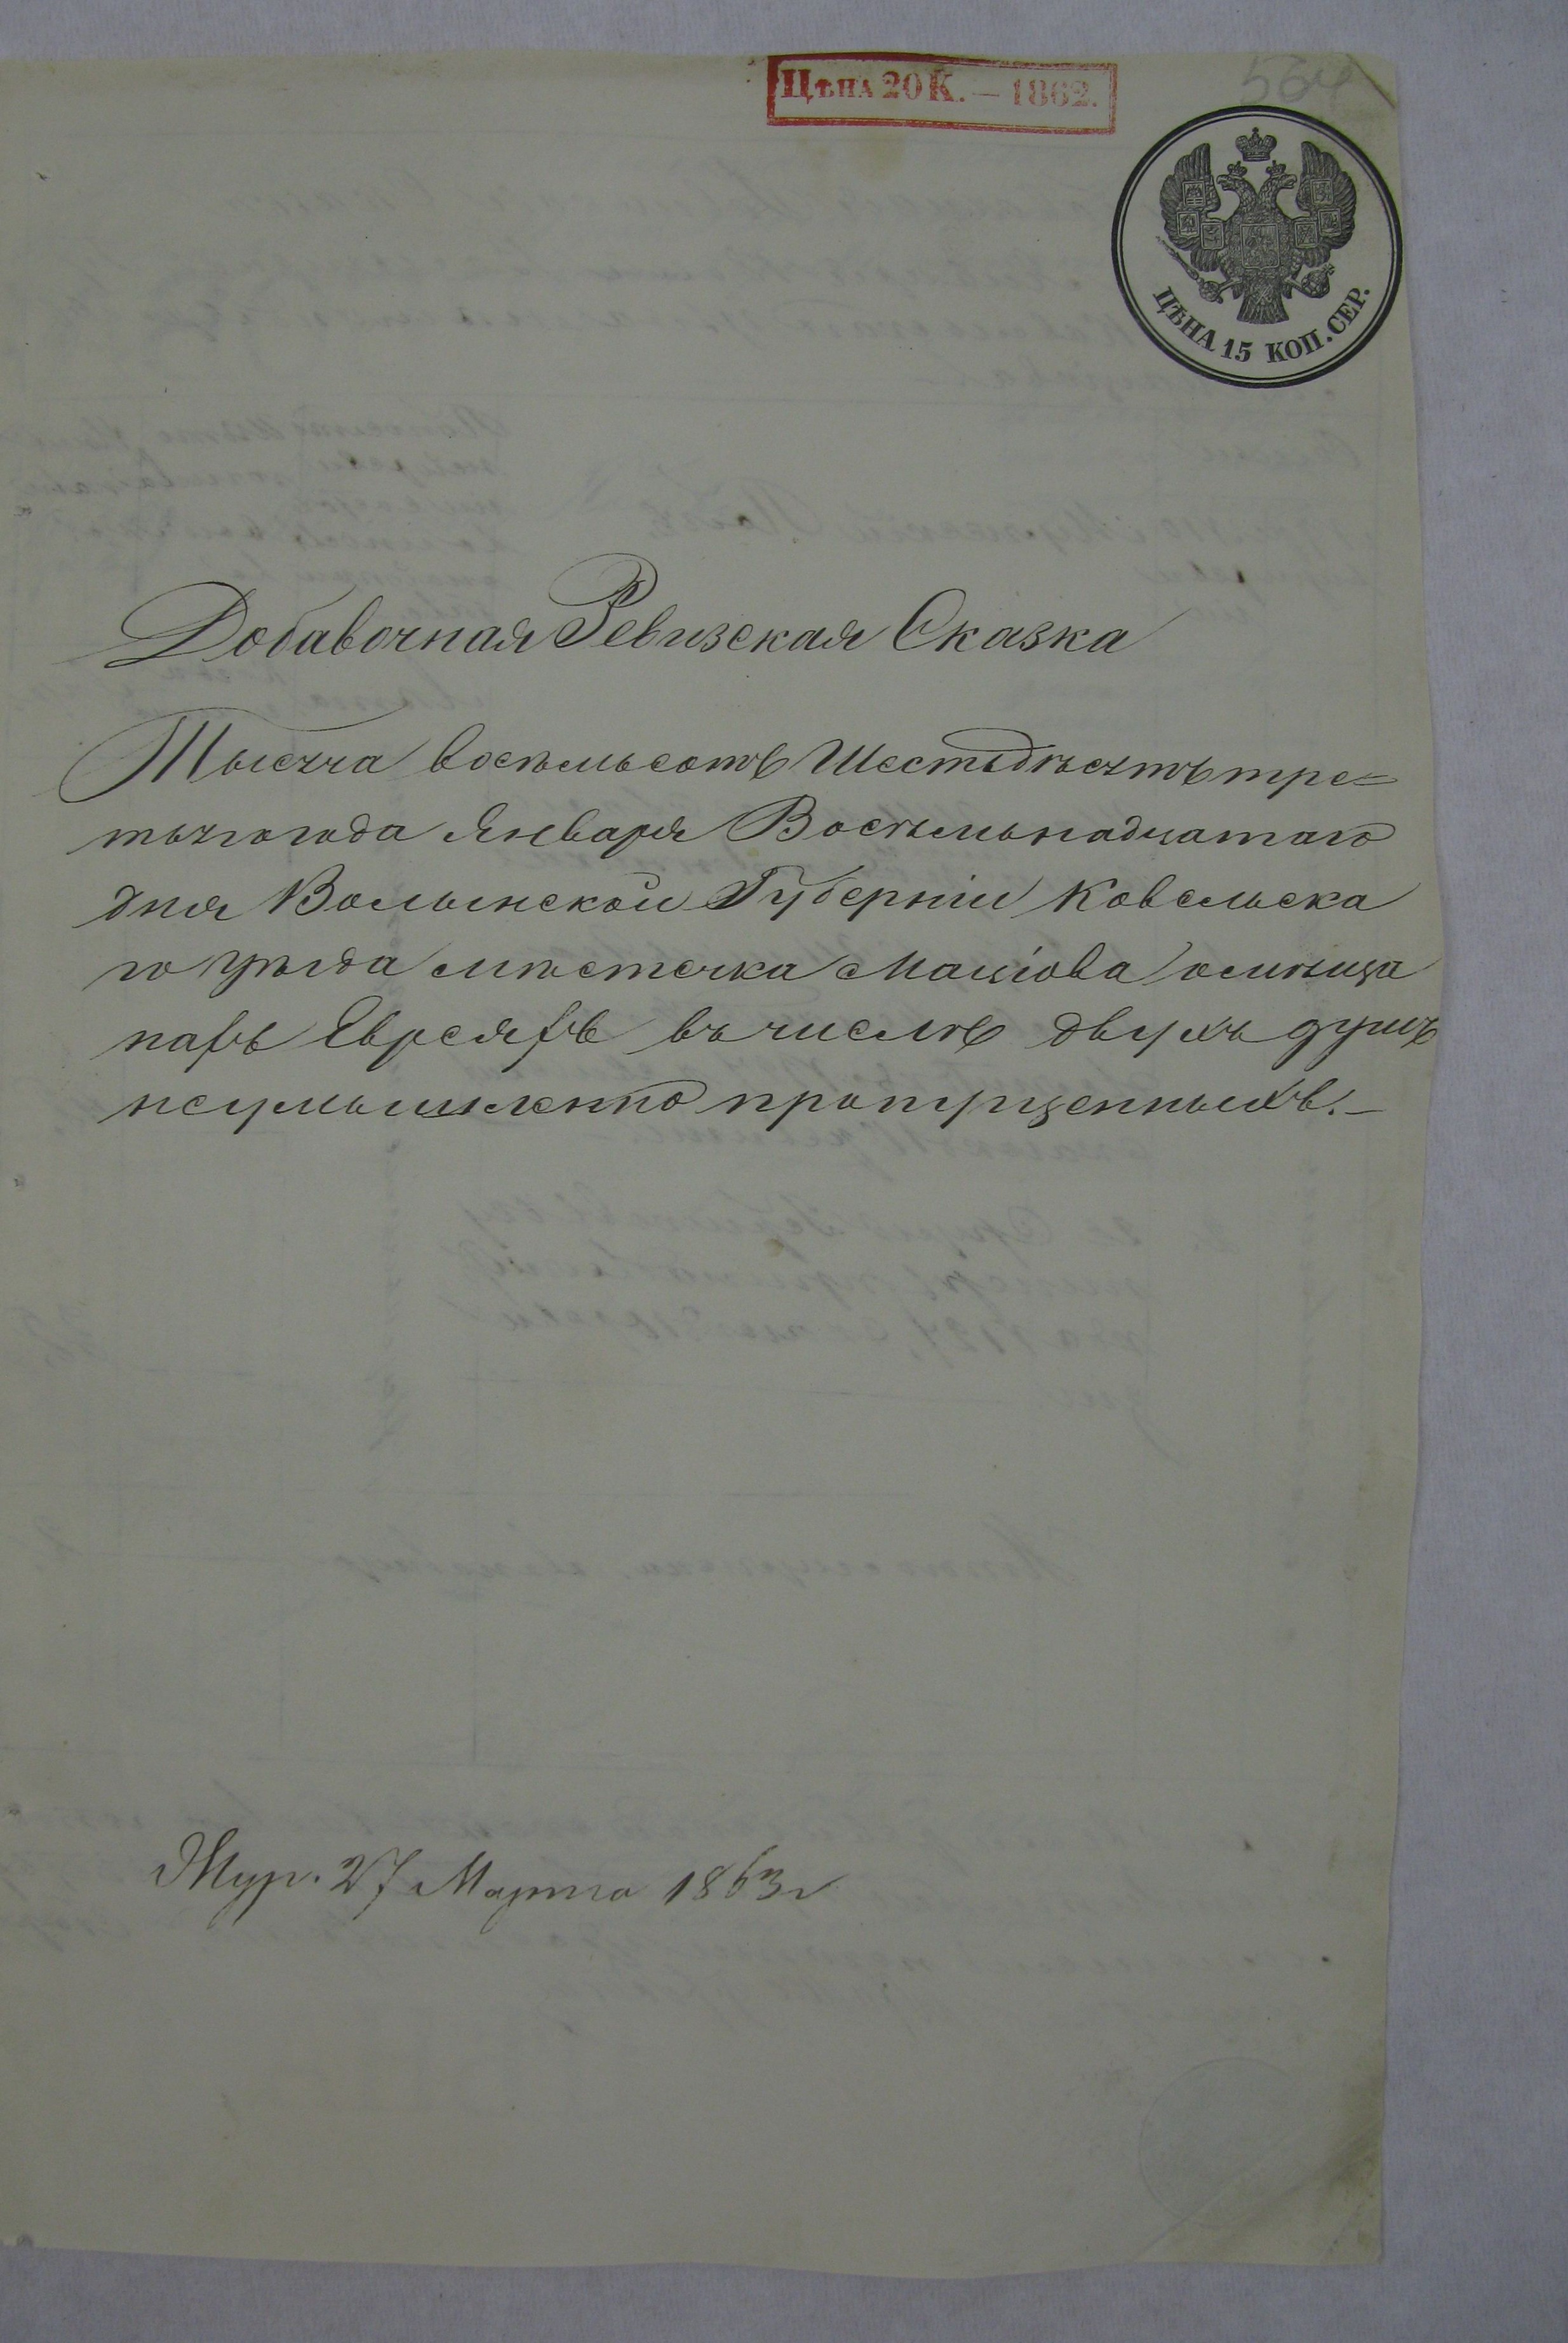 Цѣна 20 К. — 1862.
564
ЦѢНА 15 КОП. СЕР.
Добавочная Ревизская Сказка
Тысеча восѣмьсотъ Шестьдѣсятъ тре=
тьяго года Января Восѣмьнадцатаго
дня Волынской Губерніи Ковельска
го уѣзда мѣстечка Маціова о мѣща
нахъ Евреяхъ въ числѣ двухъ душъ
неумышленно пропущенныхъ.—
Жур. 27 Марта 1863 г